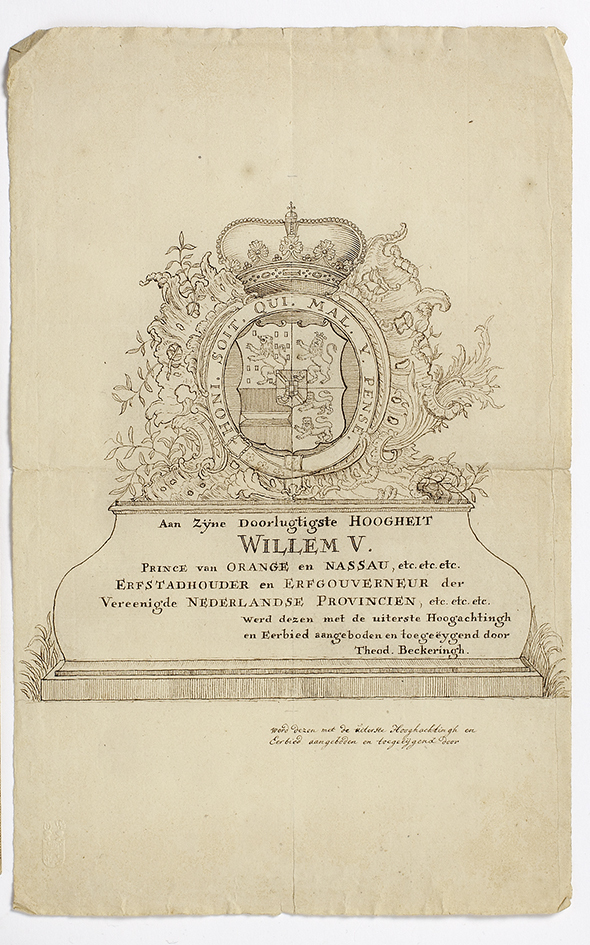 HONI. SOIT. QUI. MAL. Y. PENSE.
Aan Zÿne Doorlugtigste HOOGHEIT
WILLEM V.
PRINCE van ORANGE en NASSAU, etc. etc. etc.
ERFSTADHOUDER en ERFGOUVERNEUR der
Vereenigde NEDERLANDSE PROVINCIEN, etc. etc. etc.
werd dezen met de uiterste Hoogachtingh
en Eerbied aangeboden en toegeëygend door
Theod. Beckeringh.
werd dezen met de uiterste Hooghachtingh en
Eerbied aangeboden en toegeëÿgend door